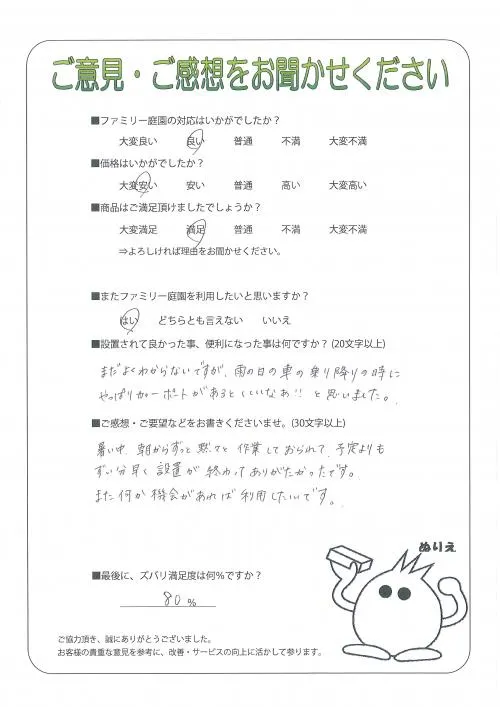 ご意見・ご感想をお聞かせください
■ファミリー庭園の対応はいかがでしたか？
大変良い 良い 普通 不満 大変不満
■価格はいかがでしたか？
大変安い 安い 普通 高い 大変高い
■商品はご満足頂けましたでしょうか？
大変満足 満足 普通 不満 大変不満
⇒よろしければ理由をお聞かせください。
■またファミリー庭園を利用したいと思いますか？
はい どちらとも言えない いいえ
■設置されて良かった事、便利になった事は何ですか？(20文字以上)
まだよくわからないですが、雨の日の車の乗り降りの時に
やっぱりカーポートがあるといいなあ!! と思いました。
■ご感想・ご要望などをお書きくださいませ。(30文字以上)
暑い中、朝からずっと黙々と作業しておられて、予定よりも
ずい分早く設置が終わってありがたかったです。
また何か機会があれば利用したいです。
ぬりえ
■最後に、ズバリ満足度は何%ですか？
80%
ご協力頂き、誠にありがとうございました。
お客様の貴重な意見を参考に、改善・サービスの向上に活かして参ります。